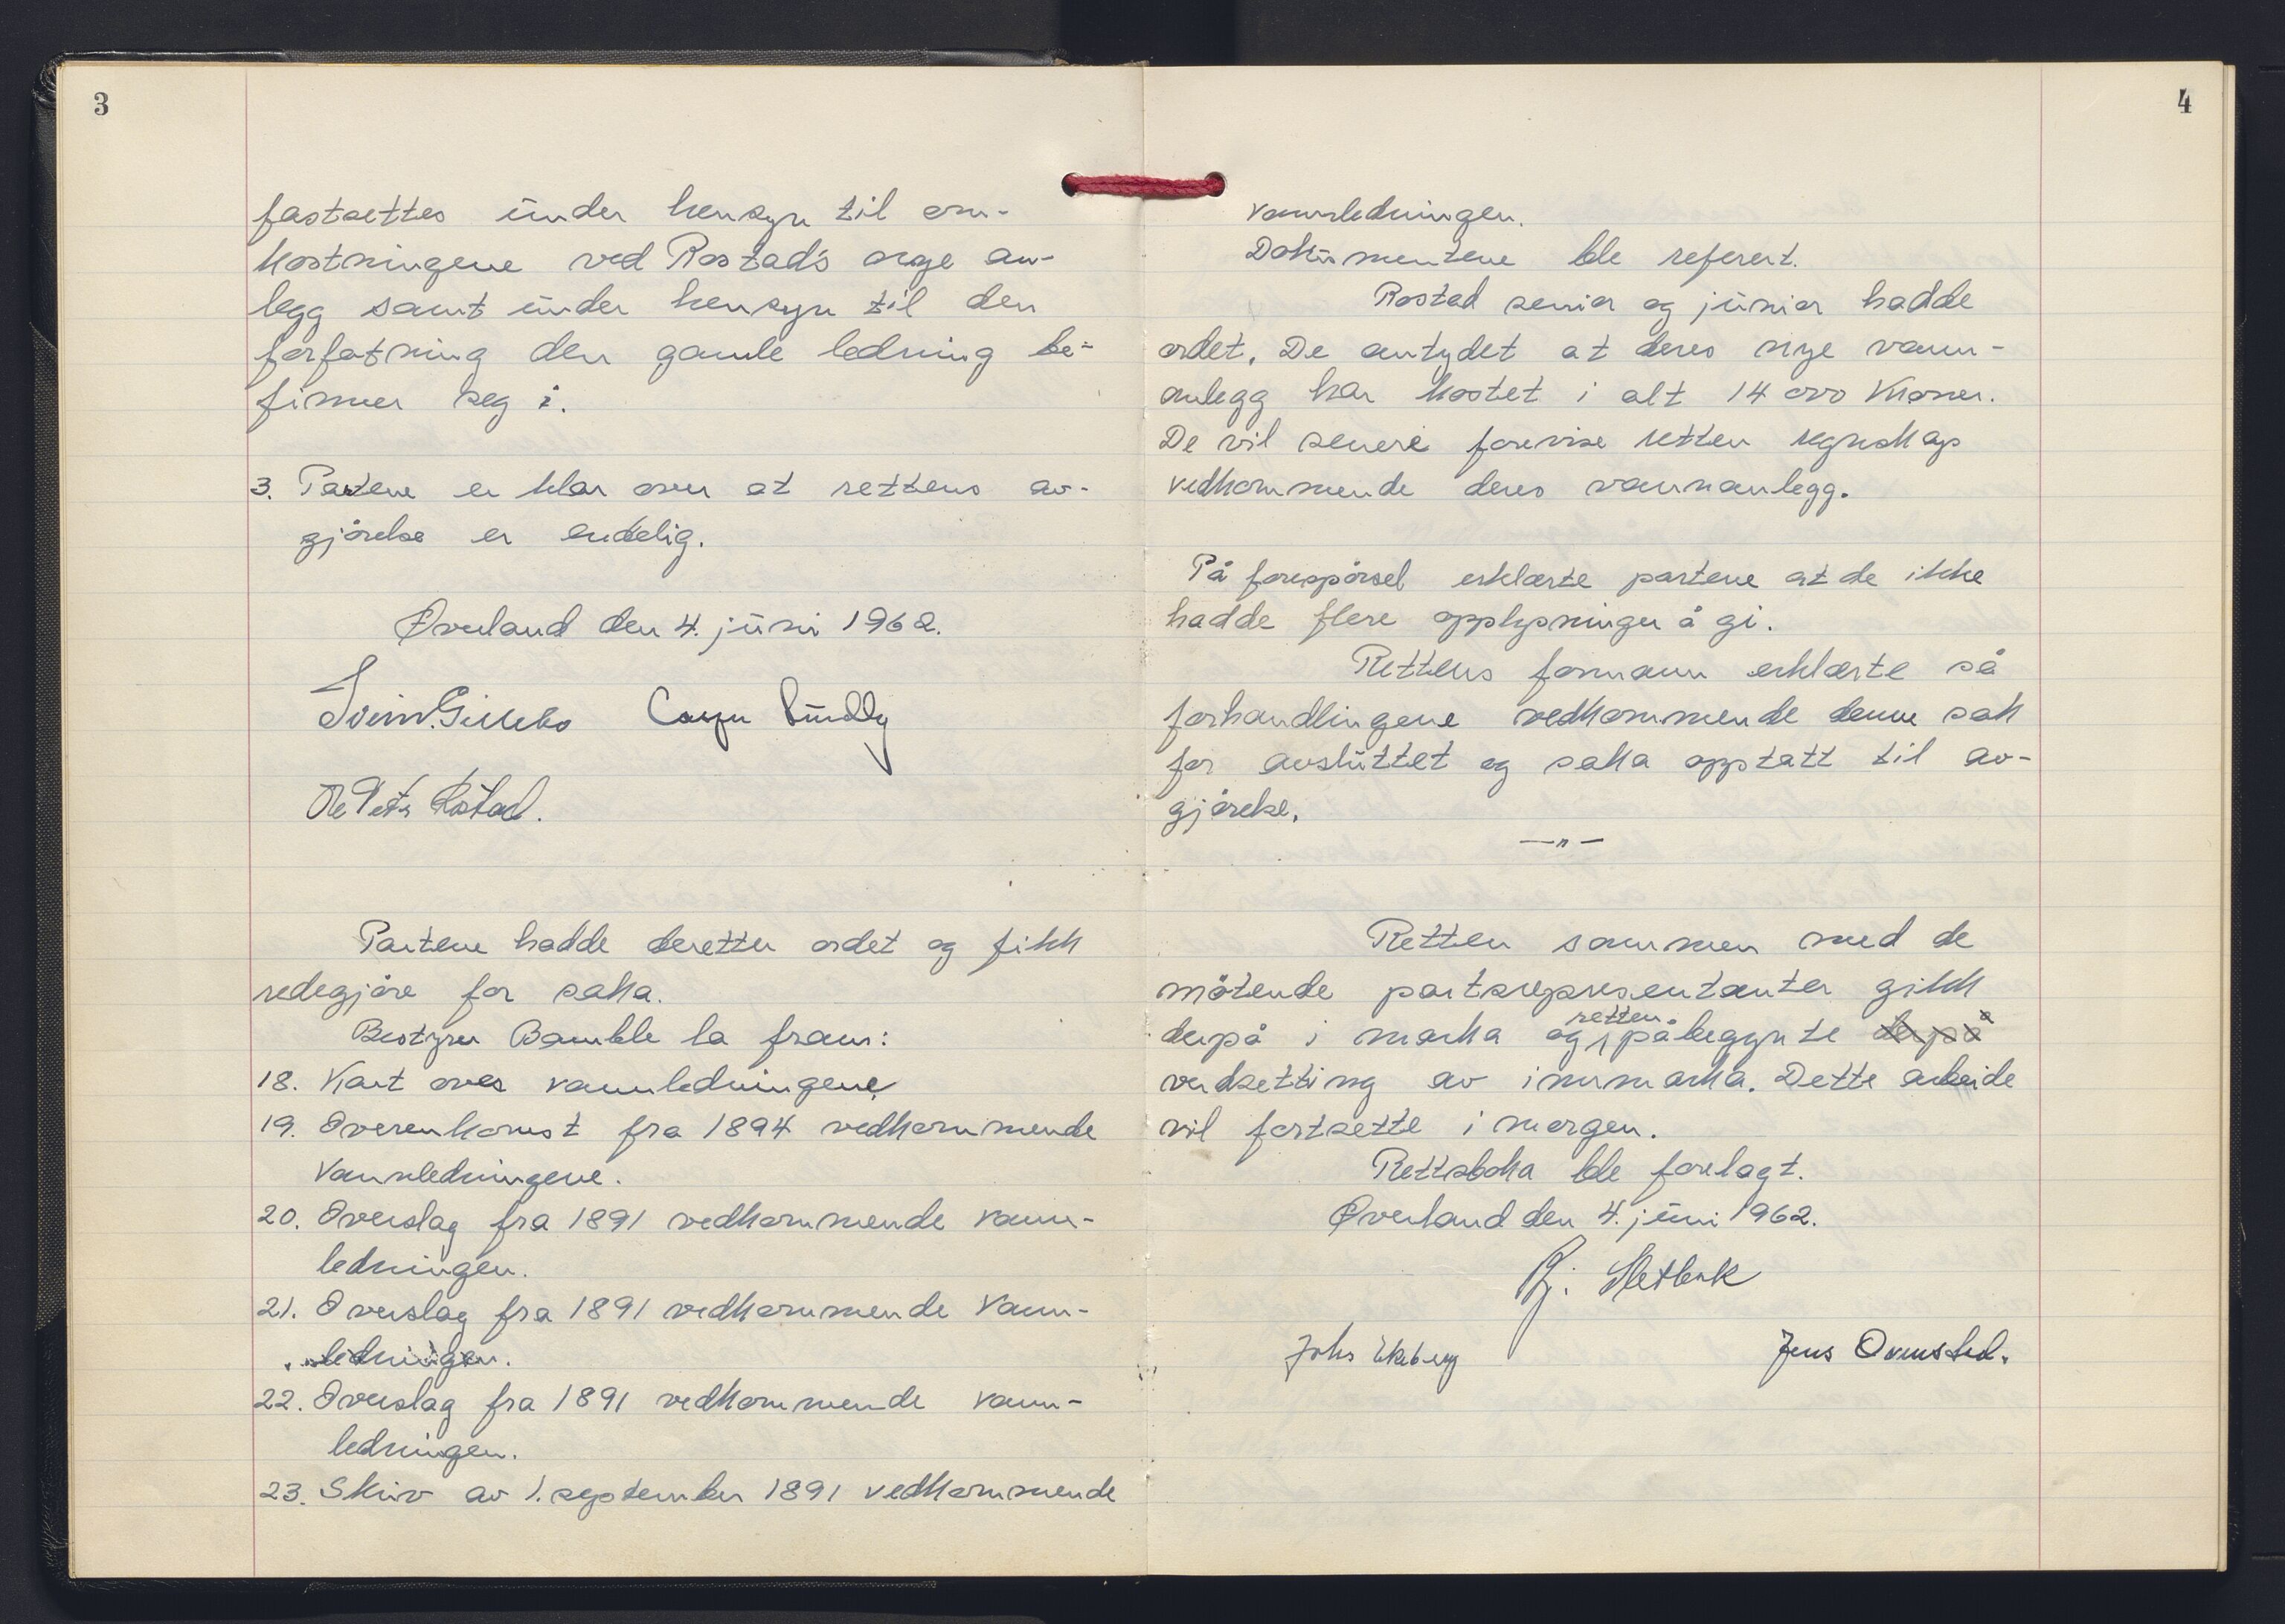 3
fastsettes under hensyn til om-
kostningene ved Rostad's nye an-
legg samt under hensyn til den
forfatning den gamle ledning be-
finner seg i.
3. Partene er klar over at rettens av-
gjørelse er endelig.
Øverland den 4. juni 1962.
Ole Petr Rostad.
Partene hadde deretter ordet og fikk
redegjøre for saka.
Bestyrer Bamble la fram:
18. Kart over vannledningene
19. Overenkomst fra 1894 vedkommende
vannledningene.
20. Overslag fra 1891 vedkommende vann-
ledningen.
21. Overslag fra 1891 vedkommende vann-
ledningen.
22. Overslag fra 1891 vedkommende vann-
ledningen.
23. Skriv av 1. september 1891 vedkommende
4
vannledningen.
Dokumentene ble referert.
Rostad senior og junior hadde
ordet. De antydet at deres nye vann-
anlegg har kostet i alt 14 000 kroner.
De vil senere forevise retten regnskap
vedkommende deres vannanlegg.
På forespørsel erklærte partene at de ikke
hadde flere opplysninger å gi.
Rettens formann erklærte så
forhandlingene vedkommende denne sak
for avsluttet og saka opptatt til av-
gjørelse.
—"—
Retten sammen med de
møtende partsrepresentanter gikk
derpå i marka og retten påbegynte derpå
verdsetting av innmarka. Dette arbeide
vil fortsette i morgen.
Rettsboka ble forelagt.
Øverland den 4. juni 1962.
Johs Ekeberg
Jens